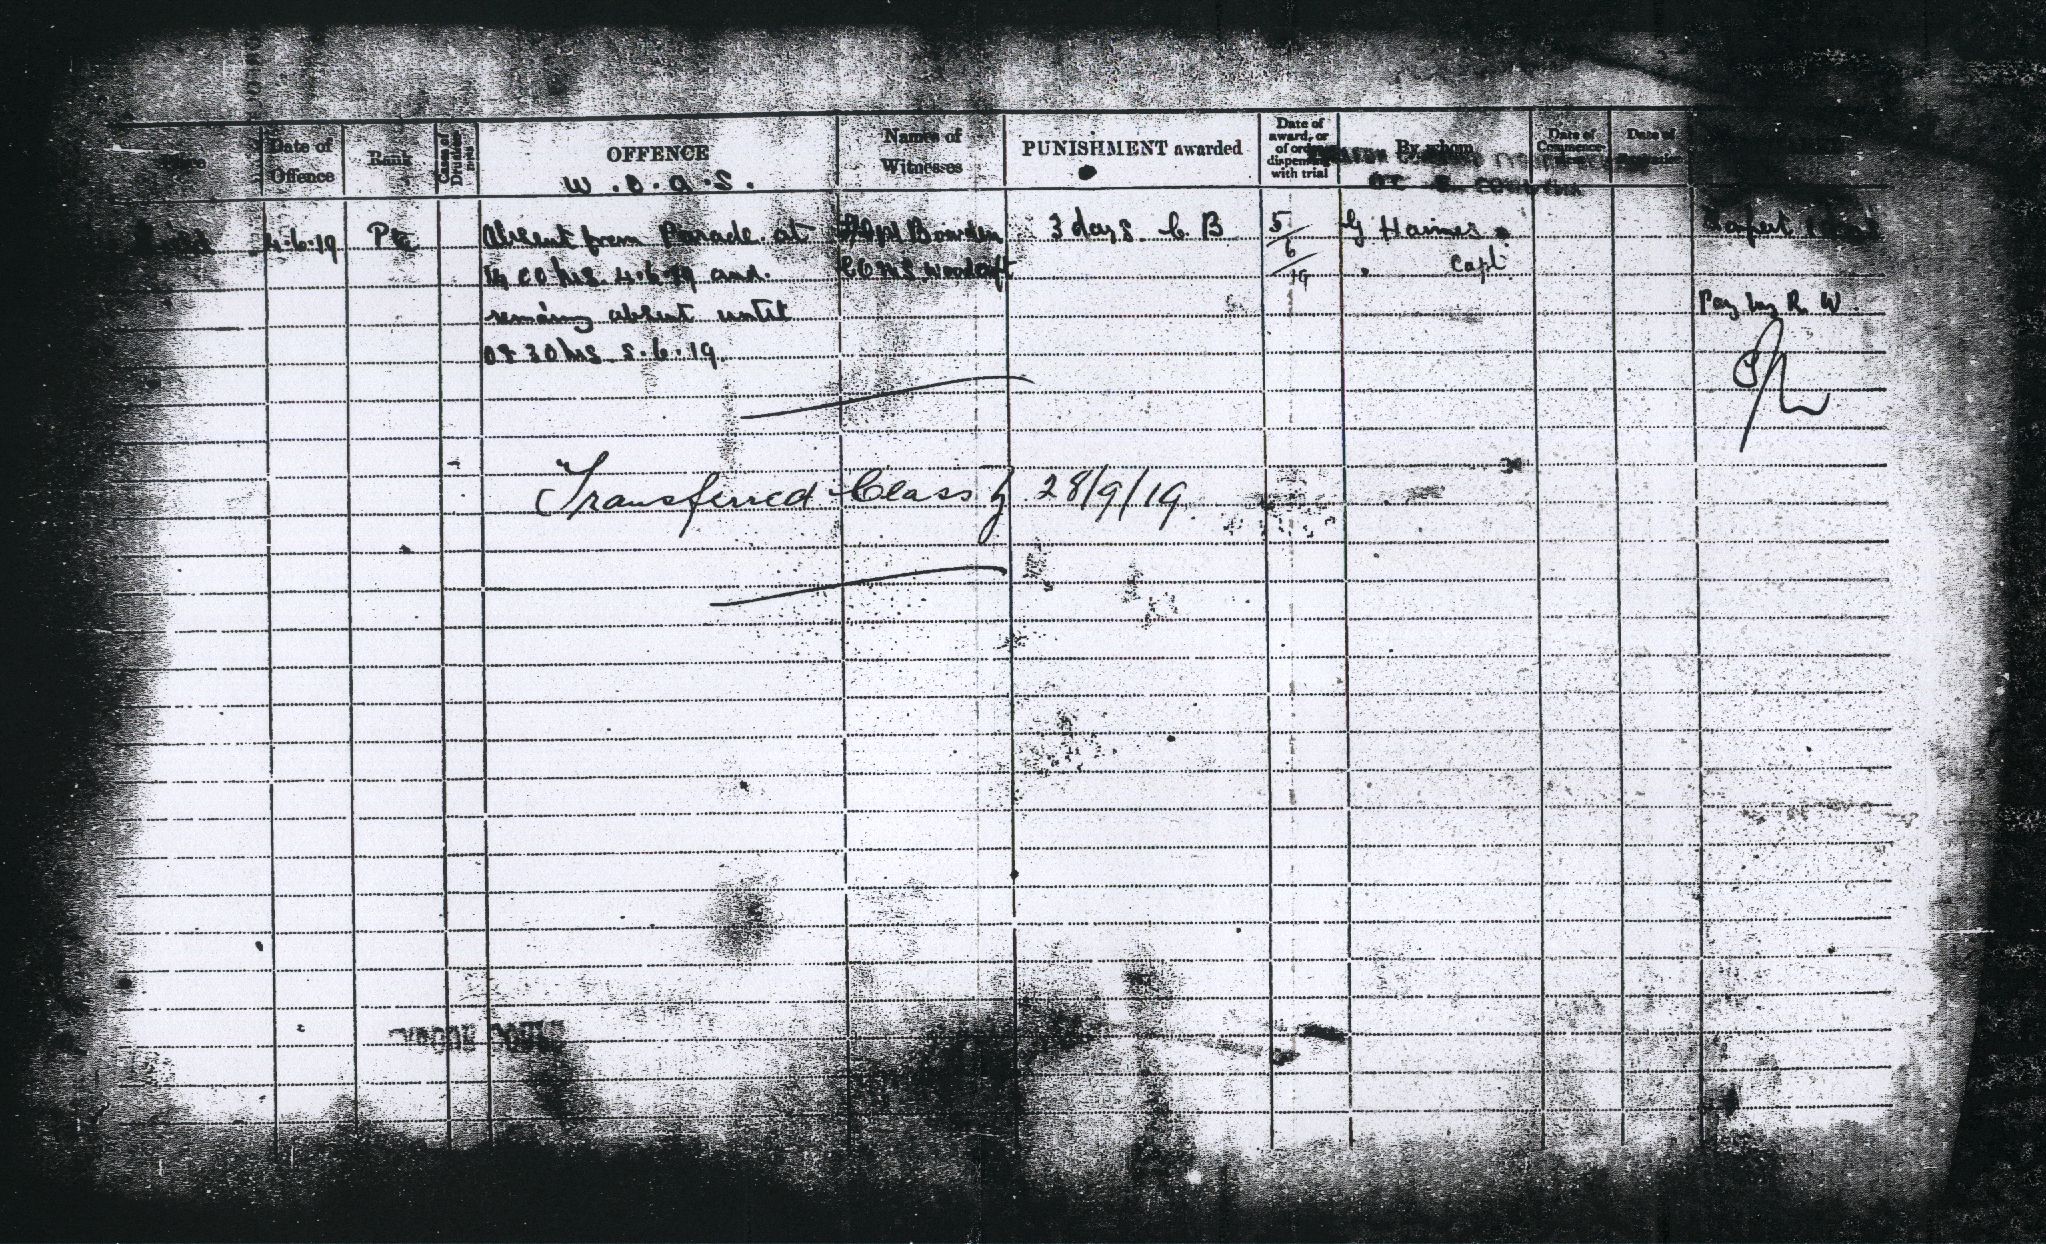 Place
Date of Offence
Rank
Cases of Drunkenness
OFFENCE
Names of Witnesses
PUNISHMENT awarded
Date of award, or of order dispensing with trial
By whom
Date of
Date of
W.O.A.S.
4.6.19 Pte Absent from Parade at Bowden 3 days. C B 5/6/19 G Haines
00 hrs 4.6.19 and C Q M S Woodcroft Capt
remaing absent until Pay by R. W.
30 hrs 5.6.19
Transferred Class Z 28/9/19